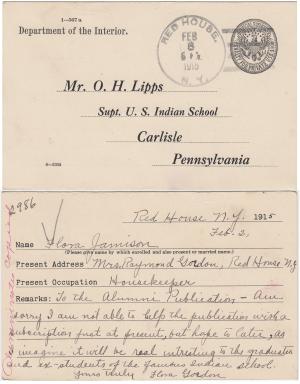 1-567 a
Department of the Interior.
RED HOUSE.
FEB
N.Y.
Mr. O. H. Lipps
Supt. U. S. Indian School
Carlisle
Pennsylvania
Red House N.Y. 1915
Feb. 2,
Name Flora Jamison
(Please give name by which enrolled and also present or married name.)
Present Address Mrs. Raymond Gordon, Red House N.Y.
Present Occupation Housekeeper
Remarks: To the Alumni Publication - Am
sorry I am not able to help the publication with a
subscription just at present, but hope to later, as
imagine it will be real intresting to the graduates
and ex-students of the famous Indian school.
Yours truly Flora Gordon